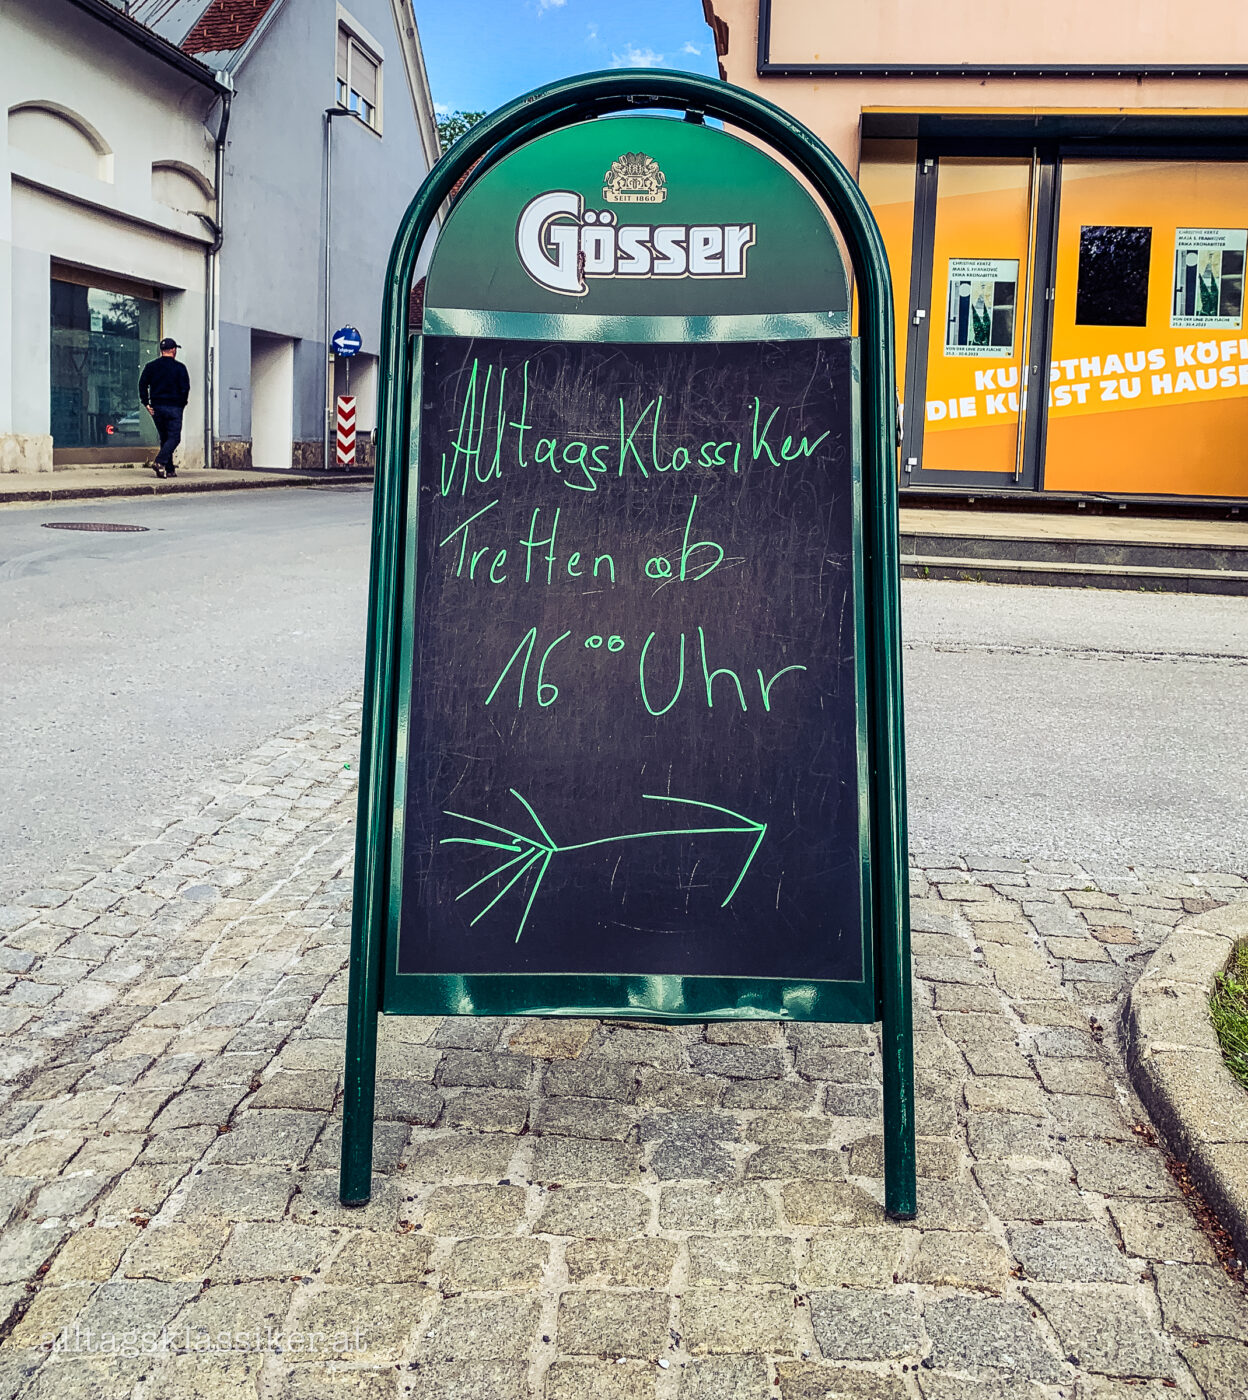 SEIT 1860
Gösser
Alltagsklassiker
Tretten ab
16⁰⁰ Uhr
CHRISTINE KERTZ
MAJA S. FRANKOVIĆ
ERIKA KRONABITTER
VON DER LINIE ZUR FLÄCHE
CHRISTINE KERTZ
MAJA S. FRANKOVIĆ
ERIKA KRONABITTER
VON DER LINIE ZUR FLÄCHE
KUNSTHAUS KÖFL
DIE KUNST ZU HAUSE
alltagsklassiker.at